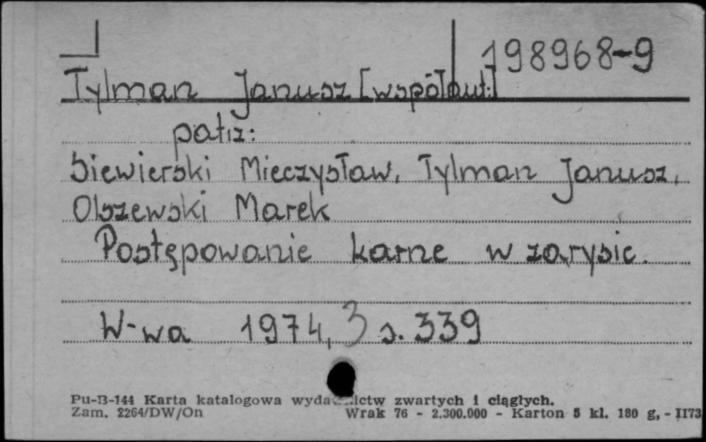 198968-9
Tylman Janusz [współaut.]
patrz:
Siewierski Mieczysław, Tylman Janusz,
Olszewski Marek
Postępowanie karne w zarysie.
W-wa 1974, 3 s. 339
Pu-B-144 Karta katalogowa zwartych i ciągłych.
Zam. 2264/DW/On Wrak 76 - 2.300.000 - Karton 5 kl. 180 g, - II73